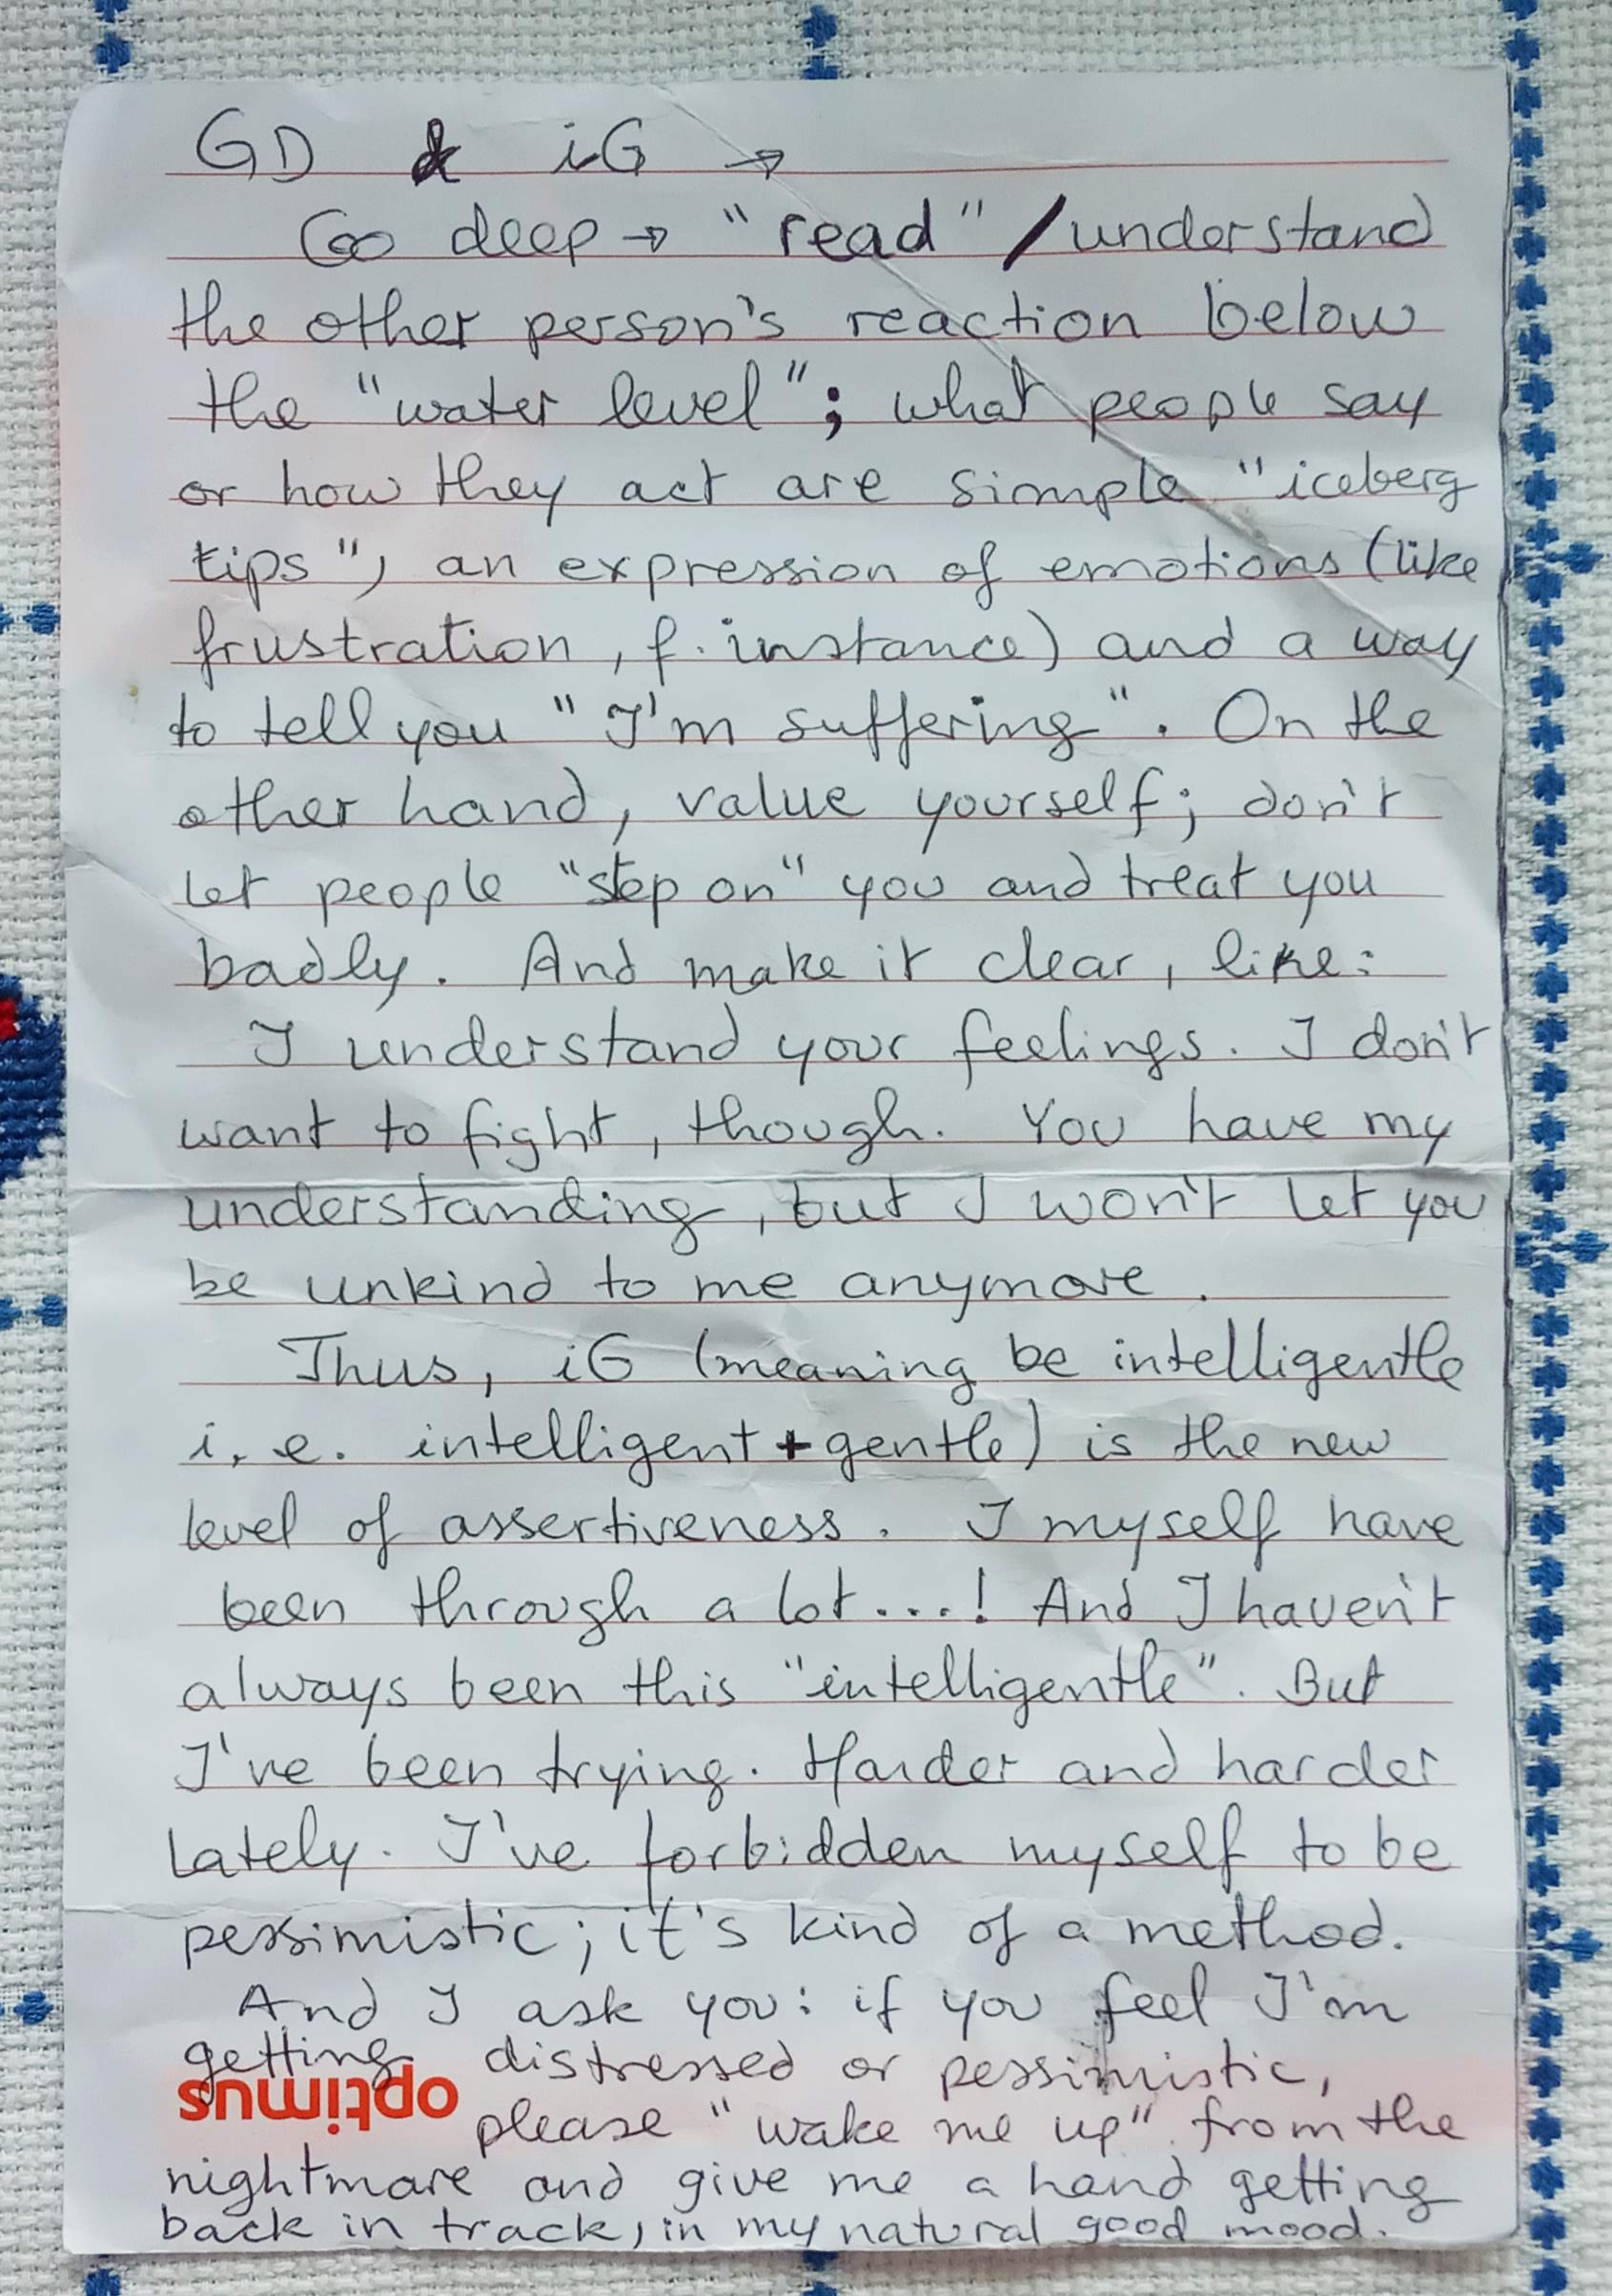 GD & iG →
Go deep → "read" / understand
the other person's reaction below
the "water level"; what people say
or how they act are simple "iceberg
tips", an expression of emotions (like
frustration, f. instance) and a way
to tell you "I'm suffering". On the
other hand, value yourself; don't
let people "step on" you and treat you
badly. And make it clear, like:
I understand your feelings. I don't
want to fight, though. You have my
understanding, but I won't let you
be unkind to me anymore.
Thus, iG (meaning be intelligentle
i.e. intelligent + gentle) is the new
level of assertiveness. I myself have
been through a lot...! And I haven't
always been this "intelligentle". But
I've been trying. Harder and harder
lately. I've forbidden myself to be
pessimistic; it's kind of a method.
And I ask you: if you feel I'm
getting distressed or pessimistic,
optimus
please "wake me up" from the
nightmare and give me a hand getting
back in track, in my natural good mood.